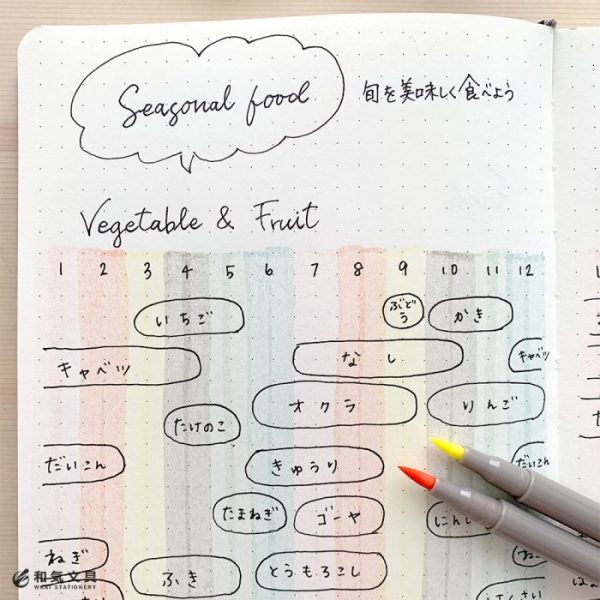 Seasonal food
旬を美味しく食べよう
Vegetable & Fruit
1 2 3 4 5 6 7 8 9 10 11 12
いちご ぶどう かき
キャベツ なし キャベツ
たけのこ オクラ りんご
だいこん きゅうり だいこん
たまねぎ ゴーヤ にんじ
ねぎ ふき とうもろこし ねぎ
和気文具
WAKI STATIONERY